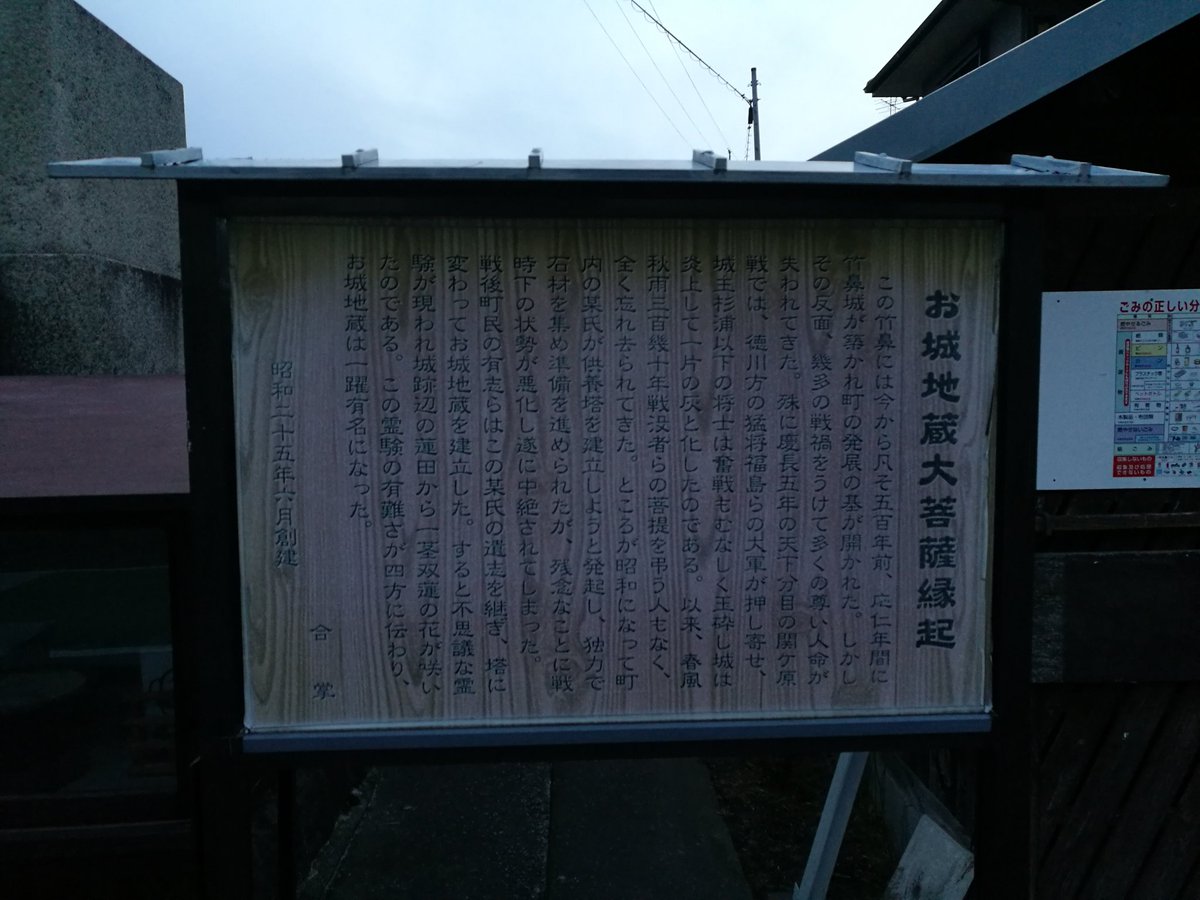 お城地蔵大菩薩縁起
この竹鼻には今から凡そ五百年前、応仁年間に
竹鼻城が築かれ町の発展の基が開かれた。しかし
その反面、幾多の戦禍をうけて多くの尊い人命が
失われてきた。殊に慶長五年の天下分目の関ケ原
戦では、徳川方の猛将福島らの大軍が押し寄せ、
城主杉浦以下の将士は奮戦もむなしく玉砕し城は
炎上して一片の灰と化したのである。以来、春風
秋雨三百幾十年戦没者らの菩提を弔う人もなく、
全く忘れ去られてきた。ところが昭和になって町
内の某氏が供養塔を建立しようと発起し、独力で
石材を集め準備を進められたが、残念なことに戦
時下の状勢が悪化し遂に中絶されてしまった。
戦後町民の有志らはこの某氏の遺志を継ぎ、塔に
変わってお城地蔵を建立した。すると不思議な霊
験が現われ城跡辺の蓮田から一茎双蓮の花が咲い
たのである。この霊験の有難さが四方に伝わり、
お城地蔵は一躍有名になった。
合掌
昭和二十五年六月創建
ごみの正しい分
燃やせるごみ
プラスチック類
ペットボトル
燃やせないごみ
収集しないもの